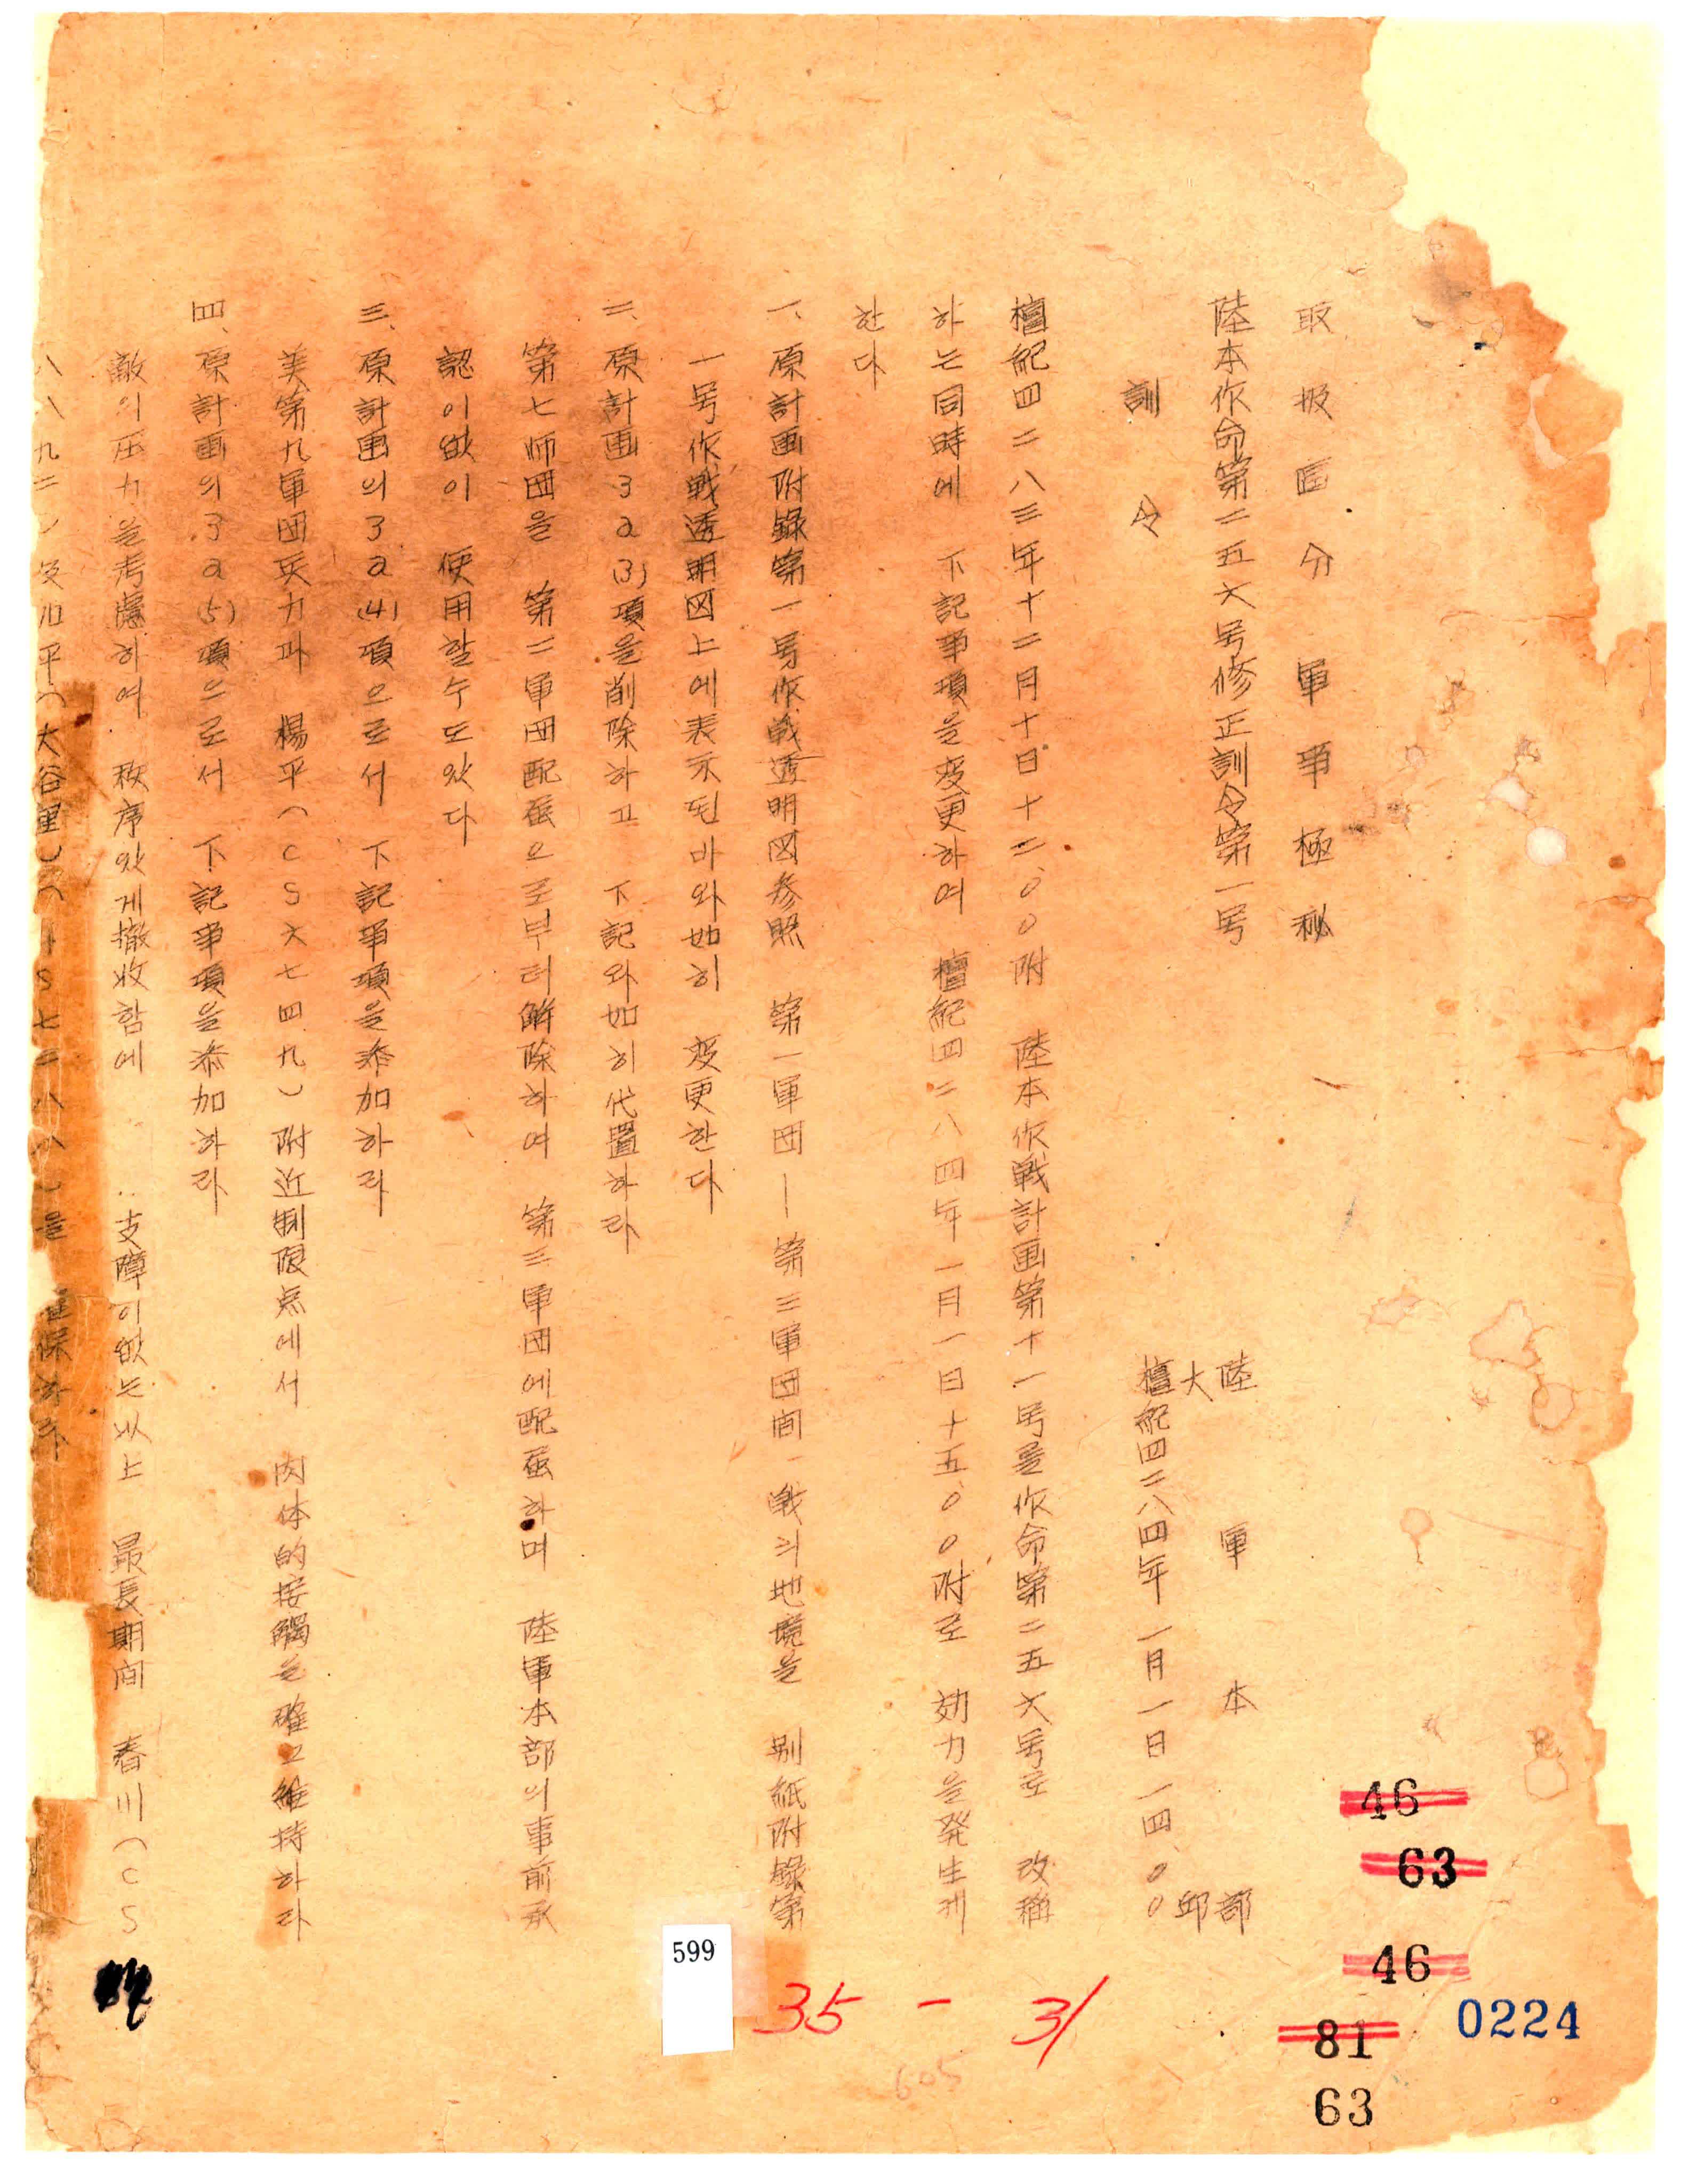 取扱区分 軍事極秘
陸本作命第二五六号修正訓令第一号
陸軍本部
大邱
檀紀四二八四年一月一日一四、〇〇
訓令
檀紀四二八三年十二月十日十二、〇〇附 陸本作戦計画第十一号를作命第二五六号로 改稱
하는同時에 下記事項을変更하여 檀紀四二八四年一月一日十五、〇〇附로 効力을発生케
한다
一、原計画附錄第一号作戦透明図参照 第一軍団—第三軍団間 戦斗地境을 別紙附錄第
一号作戦透明図上에表示된바와如히 変更한다
二、原計画3a(3)項을削除하고 下記와如히代置하라
第七師団을 第二軍団配屬으로부터解除하여 第三軍団에配屬하며 陸軍本部의事前承
認이없이 使用할수도있다
三、原計画의3a(4)項으로서 下記事項을添加하라
美第九軍団兵力과 楊平(CS六七四九)附近制限点에서 肉体的接觸을確고維持하라
四、原計画의3a(5)項으로서 下記事項을添加하라
敵의压力을考慮하여 秩序있게撤收함에 支障이없는以上 最長期间 春川(CS
八八九二)及加平(大谷里)(S七二八八)을 確保하
599
35-31
605
46
63
46
81
63
0224